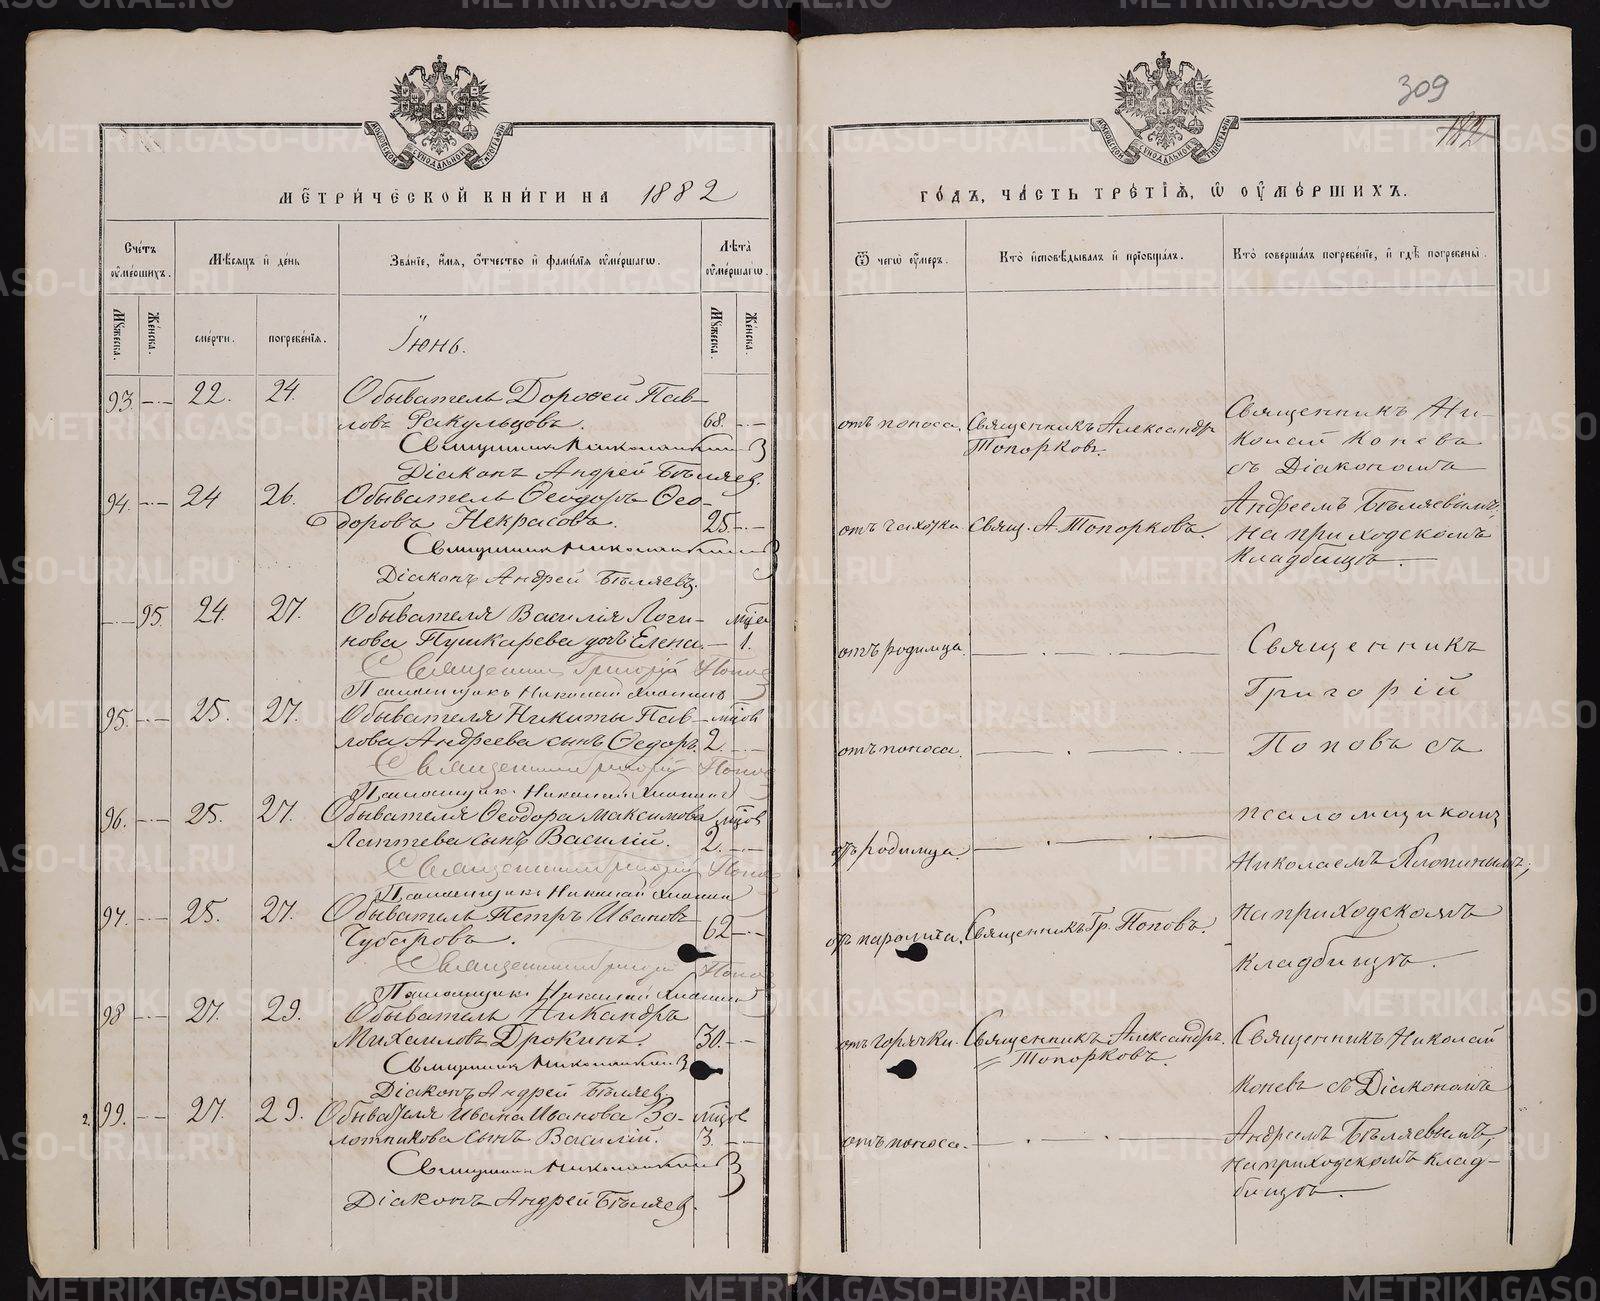 МЕТРИЧЕСКОЙ КНИГИ НА 1882
Счетъ умершихъ.
Мѣсяцъ и день
Званіе, имя, отчество и фамилія умершаго.
Лѣта умершаго.
Мужеска.
Женска.
смерти.
погребенія.
Іюнь.
Мужеска.
Женска.
93. 22. 24. Обыватель Дороѳей Пав-
ловъ Ракульцовъ. 68.
Діаконъ Андрей Бѣляевъ.
94. 24 26. Обыватель Ѳеодоръ Ѳео-
доровъ Некрасовъ. 25
Діаконъ Андрей Бѣляевъ.
95. 24. 27. Обывателя Василія Логи-
нова Пушкарева дочь Елена. 1.
Священникъ Григорій Попов
Псаломщикъ Николай Хлопинъ
95. 25. 27. Обывателя Никиты Пав-
лова Андреева сынъ Ѳедоръ. 2.
Священникъ Григорій Попов
Псаломщикъ Николай Хлопинъ
96. 25. 27. Обывателя Ѳеодора Максимова
Лаптева сынъ Василій. 2.
Священникъ Григорій Попов
Псаломщикъ Николай Хлопинъ
97. 25. 27. Обыватель Петръ Ивановъ
Чубаровъ. 62
Священникъ Григорій Попов
Псаломщикъ Николай Хлопинъ
98 27. 29. Обыватель Никандръ
Михаиловъ Дрокинъ. 30.
Діаконъ Андрей Бѣляев
2. 99. 27. 29. Обывателя Ивана Иванова Зо-
лотникова сынъ Василій. 3.
Діаконъ Андрей Бѣляев.
309
182
ГОДЪ, ЧАСТЬ ТРЕТІЯ, О УМЕРШИХЪ.
Отъ чего умеръ.
Кто исповѣдывалъ и пріобщалъ.
Кто совершалъ погребеніе, и гдѣ погребены.
отъ поноса. Священникъ Александръ
Топорковъ.
Священникъ Ни-
колай Коневъ
съ Діакономъ
Андреемъ Бѣляевымъ,
на приходскомъ
кладбищѣ.
отъ чахотки Свящ. А. Топорковъ.
отъ родимца.
Священникъ
Григорій
Поповъ съ
псаломщикомъ
Николаемъ Хлопинымъ;
на приходскомъ
кладбищѣ.
отъ поноса.
отъ родимца.
отъ паралича. Священникъ Гр. Поповъ.
отъ горячки. Священникъ Александръ
Топорковъ.
Священникъ Николай
Коневъ съ Діакономъ
Андреемъ Бѣляевымъ,
на приходскомъ клад-
бищѣ.
отъ поноса.
METRIKI.GASO-URAL.RU